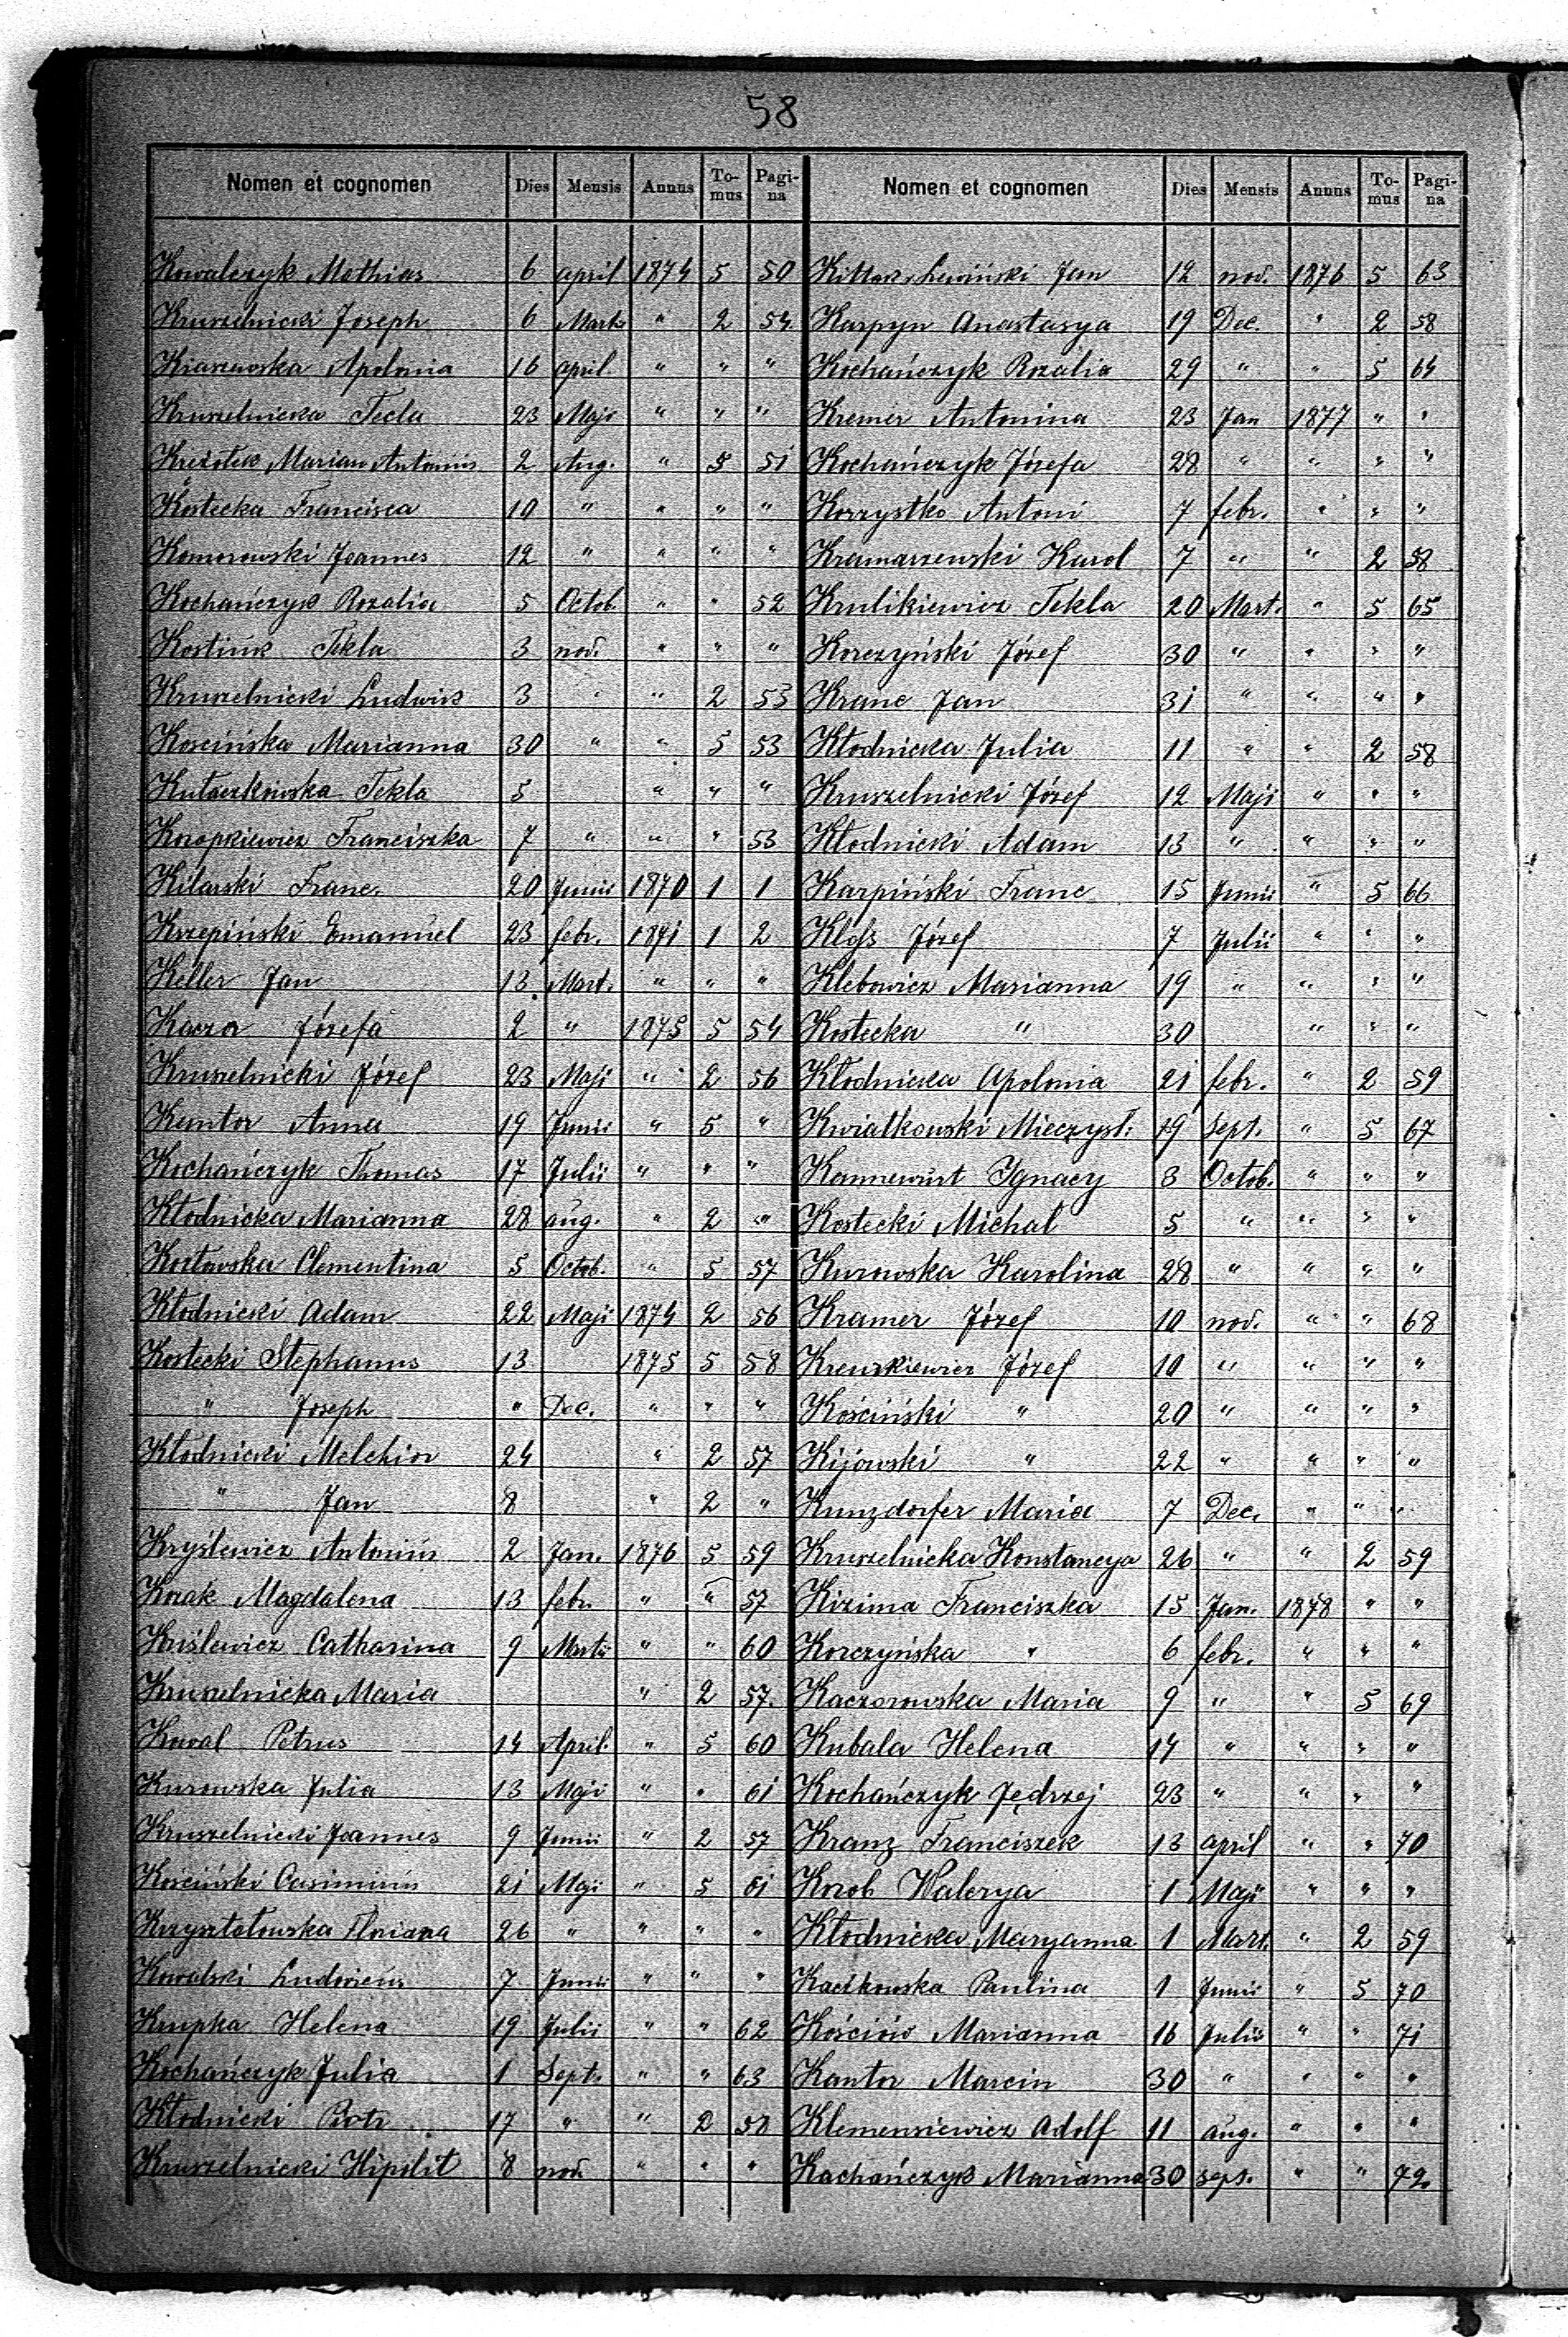 58
Nomen et cognomen Dies Mensis Annus To-mus Pagi-na
Kowalczyk Mathias 6 april 1874 5 50
Kruszelnicki Joseph 6 Marti " 2 54
Kraszewska Apolonia 16 april " " "
Kruszelnicka Tecla 23 Maji " " "
Marian Antonius 2 Aug. " 5 51
Kostecka Francisca 10 " " " "
Komorowski Joannes 12 " " " "
Kochańczyk Rozalia 5 Octob. " " 52
Kostiuk Tekla 3 nov. " " "
Kruszelnicki Ludwik 3 " " 2 53
Kościńska Marianna 30 " " 5 53
Kułaczkowska Tekla 5 " " "
Knopkiewicz Franciszka 7 " " " 53
Kilarski Franc. 20 Junii 1870 1 1
Krzepiński Emanuel 23 febr. 1871 1 2
Keller Jan 13 Mart. " " "
Kaczor Józefa 2 " 1875 5 54
Kruszelnicki Józef 23 Maji " 2 56
Kantor Anna 19 Junii " 5 "
Kochańczyk Thomas 17 Julii " " "
Kłodnicka Marianna 28 aug. " 2 "
Kozłowska Clementina 5 Octob. " 5 57
Kłodnicki Adam 22 Maji 1874 2 56
Kostecki Stephanus 13 1875 5 58
" Joseph " Dec. " " "
Kłodnicki Melchior 24 " 2 57
" Jan 8 " 2 "
Kryślewicz Antonius 2 Jan. 1876 5 59
Kozak Magdalena 13 febr. " " 57
Kriślewicz Catharina 9 Martii " " 60
Kruszelnicka Maria " 2 57.
Kowal Petrus 14 April. " 5 60
Kurowska Julia 13 Maji " " 61
Kruszelnicki Joannes 9 Junii " 2 57
Kościński Casimirus 21 Maji " 5 61
Krzyształowska Floriana 26 " " " "
Kowalski Ludovicus 7 Junii " " "
Krupka Helena 19 Julii " " 62
Kochańczyk Julia 1 Sept. " " 63
Kłodnicki Piotr 17 " " 2 58
Kruszelnicki Hipolit 8 nov. " " "
Nomen et cognomen Dies Mensis Annus To-mus Pagi-na
Lewiński Jan 12 nov. 1876 5 63
Karpyn Anastasya 19 Dec. " 2 58
Kochańczyk Rozalia 29 " " 5 64
Kremer Antonina 23 Jan 1877 " "
Kochańczyk Józefa 28 " " " "
Korzystko Antoni 7 febr. " " "
Kramarzewski Karol 7 " " 2 58
Krulikiewicz Tekla 20 Mart. " 5 65
Korczyński Józef 30 " " " "
Kranc Jan 31 " " " "
Kłodnicka Julia 11 " " 2 58
Kruszelnicki Józef 12 Maji " " "
Kłodnicki Adam 13 " " " "
Karpiński Franc 15 Junii " 5 66
Józef 7 Julii " " "
Klebowicz Marianna 19 " " " "
Kostecka " 30 " " "
Kłodnicka Apolonia 21 febr. " 2 59
Kwiatkowski Mieczysł. 19 Sept. " 5 67
Kannewurt Ignacy 3 Octob. " " "
Kostecki Michał 5 " " " "
Kurowska Karolina 28 " " " "
Kramer Józef 10 nov. " " 68
Krenzkiewicz Józef 10 " " " "
Kościński " 20 " " " "
Kijowski " 22 " " " "
Kunzdorfer Maria 7 Dec. " " "
Kruszelnicka Konstancya 26 " " 2 59
Kizima Franciszka 15 Jan. 1878 " "
Korczyńska " 6 febr. " " "
Kaczorowska Maria 9 " " 5 69
Kubala Helena 14 " " " "
Kochańczyk Jędrzej 23 " " " "
Kranz Franciszek 13 april " " 70
Kozob Walerya 1 Maji " " "
Kłodnicka Maryanna 1 Mart. " 2 59
Kaczkowska Paulina 1 Junii " 5 70
Kościów Marianna 16 Julii " " 71
Kantor Marcin 30 " " " "
Klemensiewicz Adolf 11 aug. " " "
Kachańczyk Marianna 30 sept. " " 72